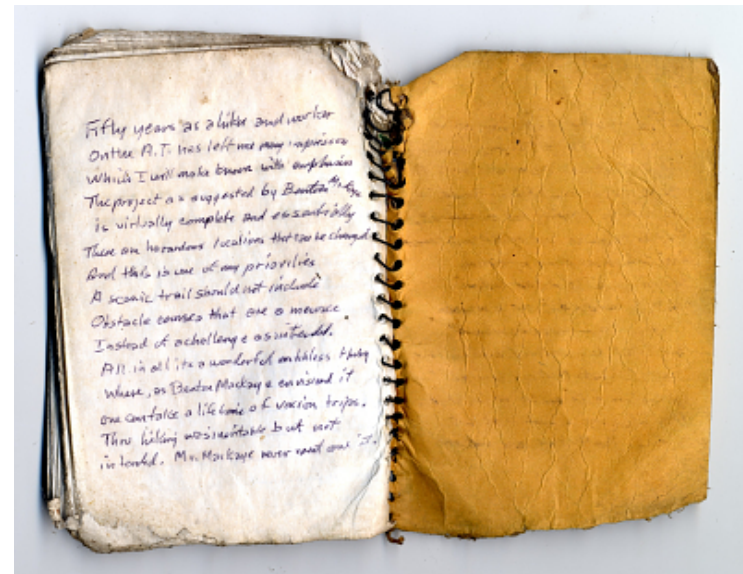 Fifty years as a hiker and worker
On the A.T. has left me many impressions
Which I will make known with emphasis
The project as suggested by Benton
is virtually complete and essentially
There are hazardous locations that can be changed
And this is one of my priorities
A scenic trail should not include
Obstacle courses that are a menace
Instead of a challenge as intended.
All in all its a wonderful endless thing
Where, as Benton Mackaye envisiond it
one can take a lifetime of various trips.
Thru hiking was inevitable but not
intended. Mr. Mackaye never went over it.